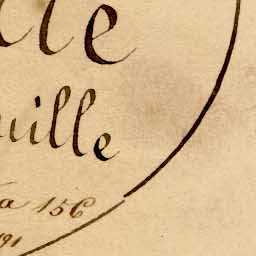 lle
uille
a 156
91